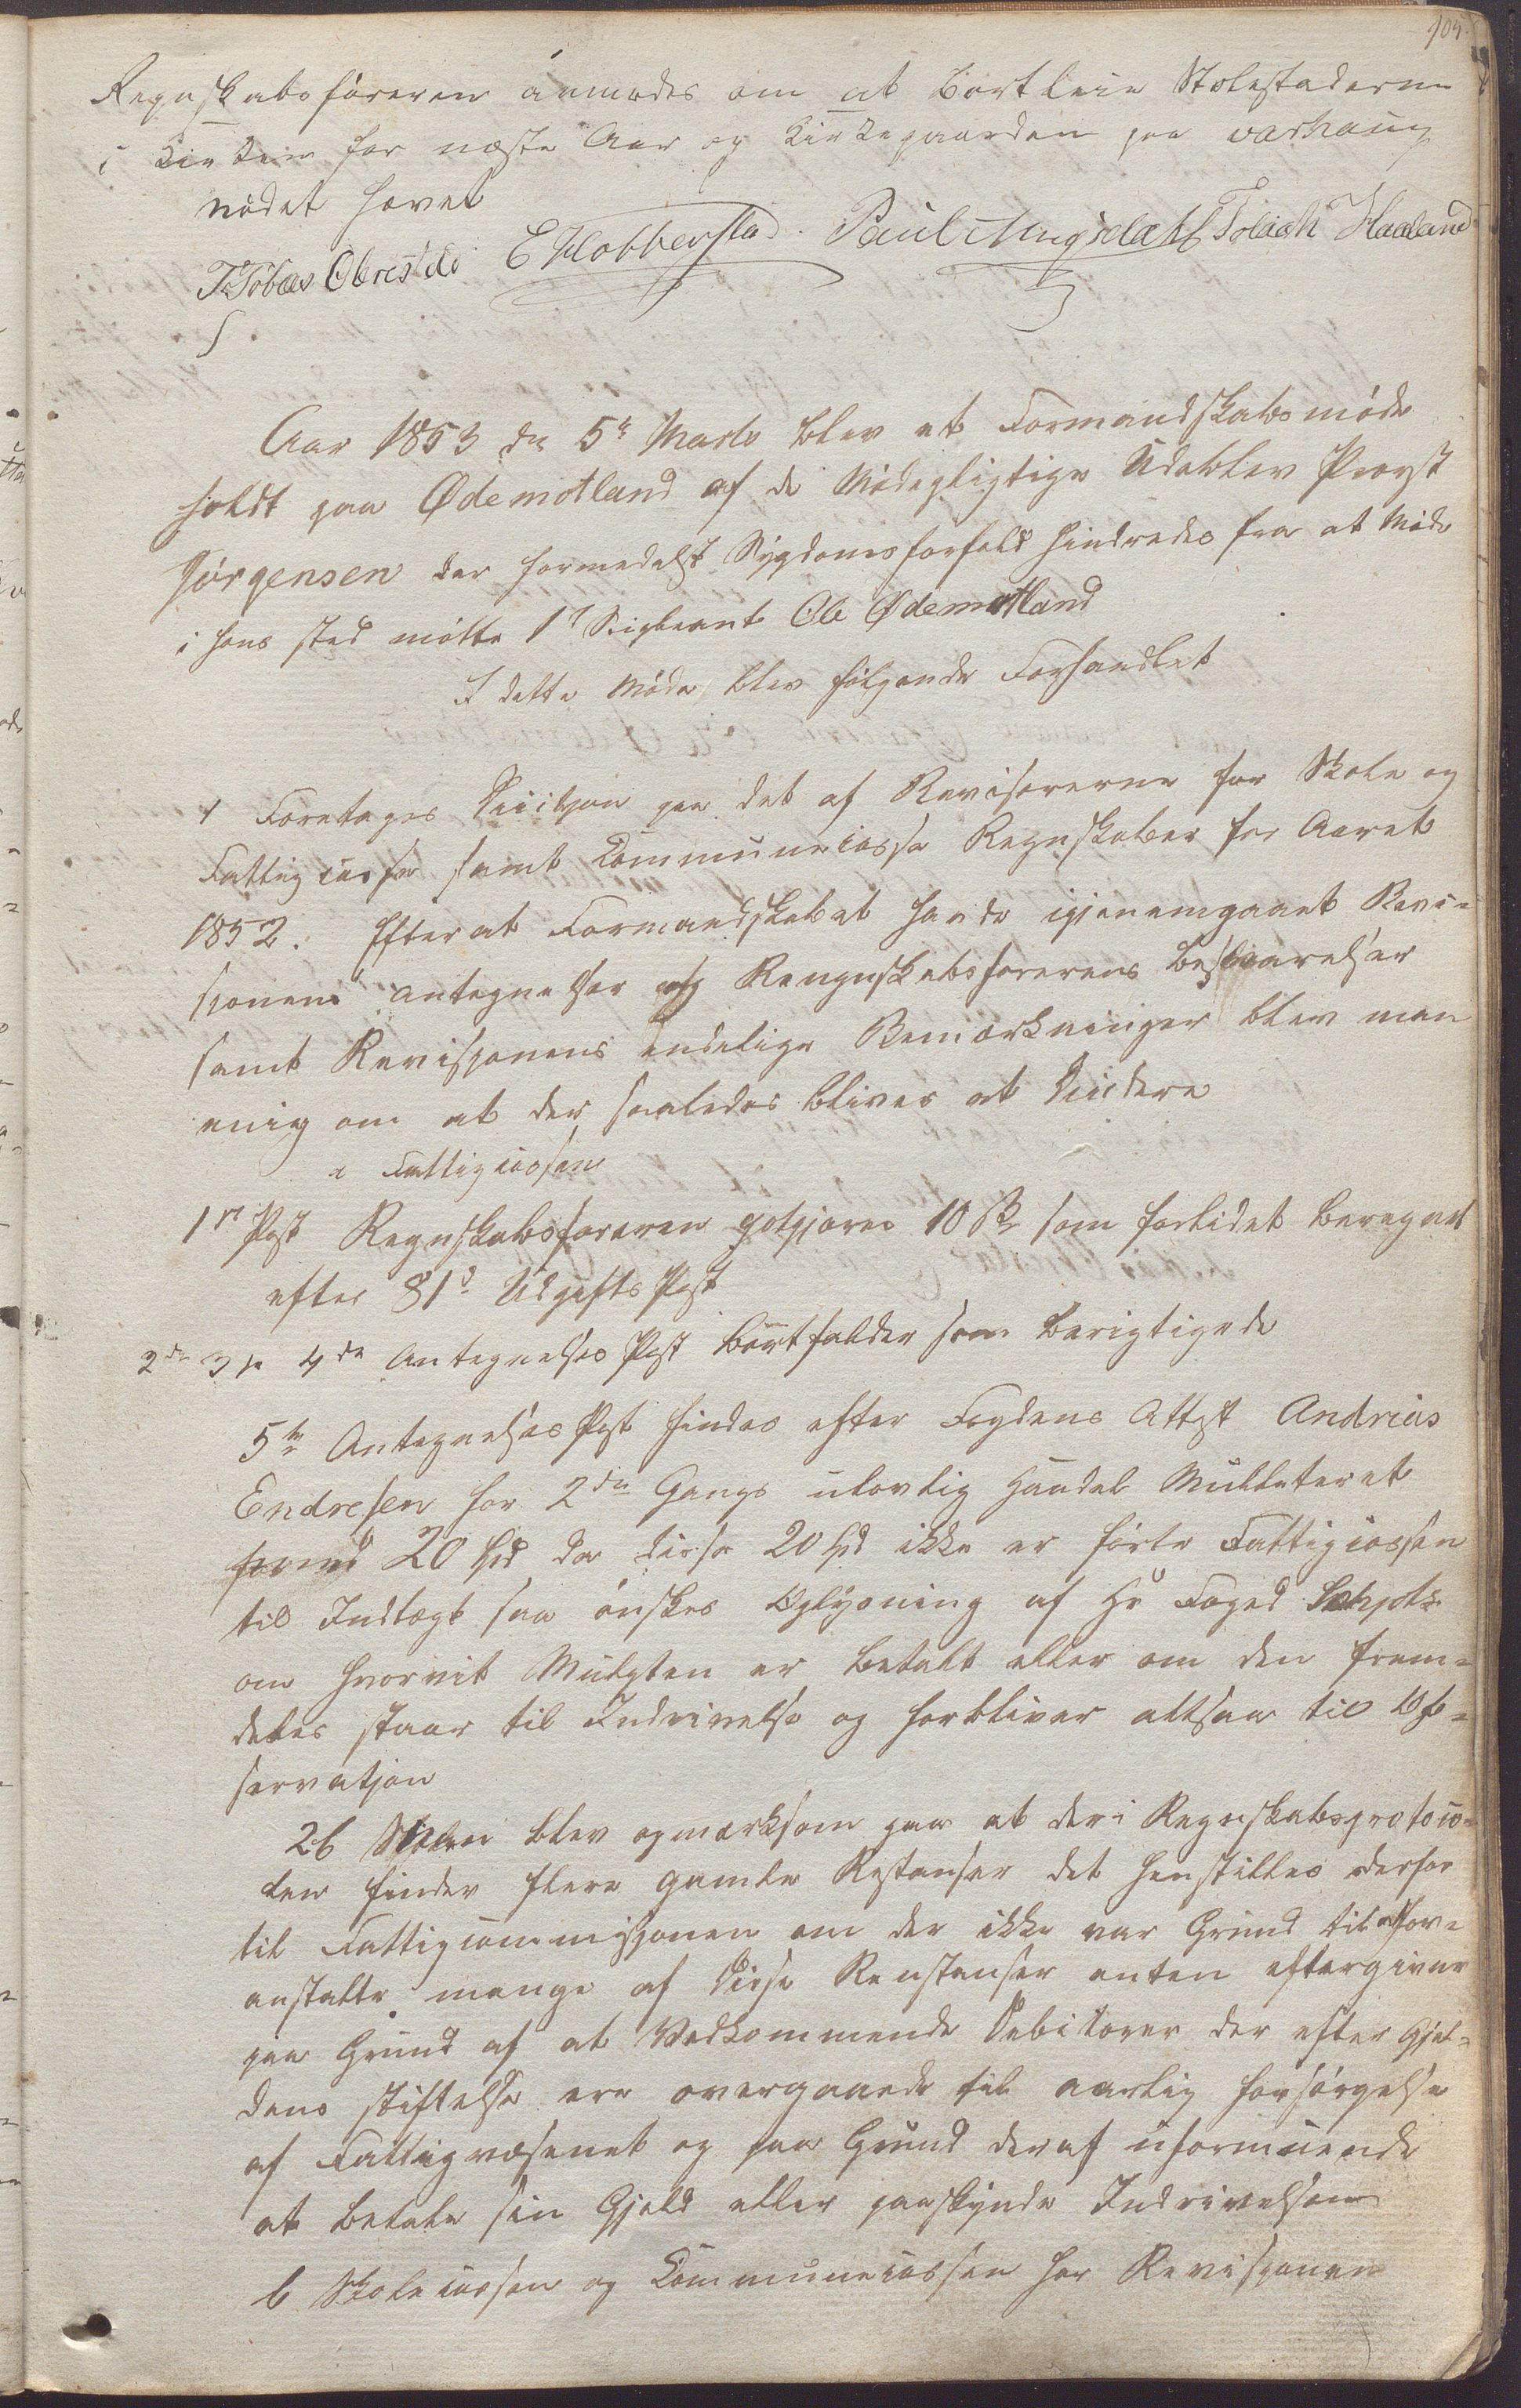 105.
Regnskabsføreren anmodes om at bortleie Stolestaderne
i Kirken for næste Aar og Kirkegaarden paa varhaug
nødet havet
T Tobias Obrestdt E Hobberstad. Paul Augsdahl Tolach Haaland
Aar 1853 dn 5te Marts blev et Formandskabsmøde
holdt paa Ødemotland af de Mødepligtige Udeblev Provst
Jørgensen der formedelst Sygdomsforfald hindredes fra at Møde
i hans sted møtte 1te Supleant Ole Ødemotland
I dette Møde blev følgende Forhandlet
1 Foretages Desisjon paa det af Revisorerne for Skole og
Fattigcasse samt Communecasse Regnskaber for Aaret
1852. Efter at Formandskabet havde igjenemgaaet Revi-
sjonens antegnelser og Rengnskabsførerens Besvarelser
samt Revisjonens endelige Bemærkninger blev man
enig om at der saaledes bliver at Desidere
a Fattigcassen
1ste Post Regnskabsføreren gotgjøres 10 S som forlidet beregnet
efter 81de Udgifts Post
2den 3je 4de Antegnelses Post bortfalder som berigtigede
5te Antegnelses Post findes efter Fogdens Attest Andreas
Endresen for 2den Gangs ulovlig Handel Mulkteret
med 20 Spd da disse 20 Spd ikke er førte Fattigcassen
til Indtægt saa ønskes Oplysning af Hr Foged
om hvorvit Mulgten er betalt eller om den frem-
deles staar til Indrivelse og forbliver altsaa til Ob-
servatjon
26 Man blev opmærksom paa at der i Regnskabsprotoco-
len findes flere gamle Restanser det henstilles derfor
til Fattigcommisjonen om der ikke var Grund til at for-
anstalte mange af disse Renstanser enten eftergivne
paa Grund af at Vedkommende Debitorer der efter Gjel-
dens stiftelse ere overgaaede til aarlig forsørgelse
af Fattigvæsenet og paa Grund deraf uformuende
at betale sin Gjeld eller paaskynde Indrivelsen
b Skolecassen og Communecassen har Revisjonen